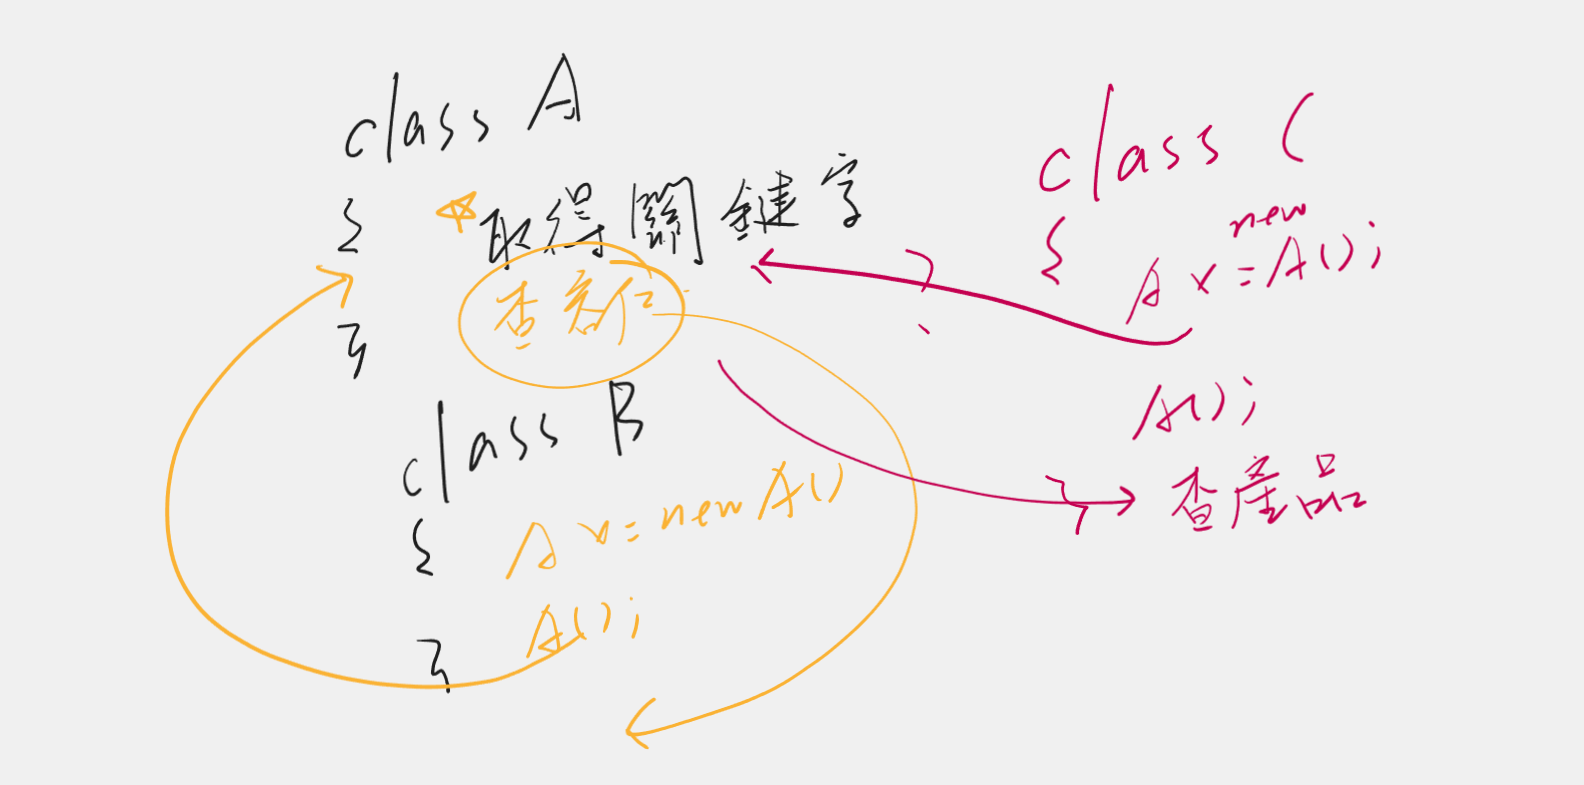 class A
{
取得關鍵字
查客戶
}
class B
{
A x = new A()
A();
}
class C
{
new
A x = A();
A();
查產品
}